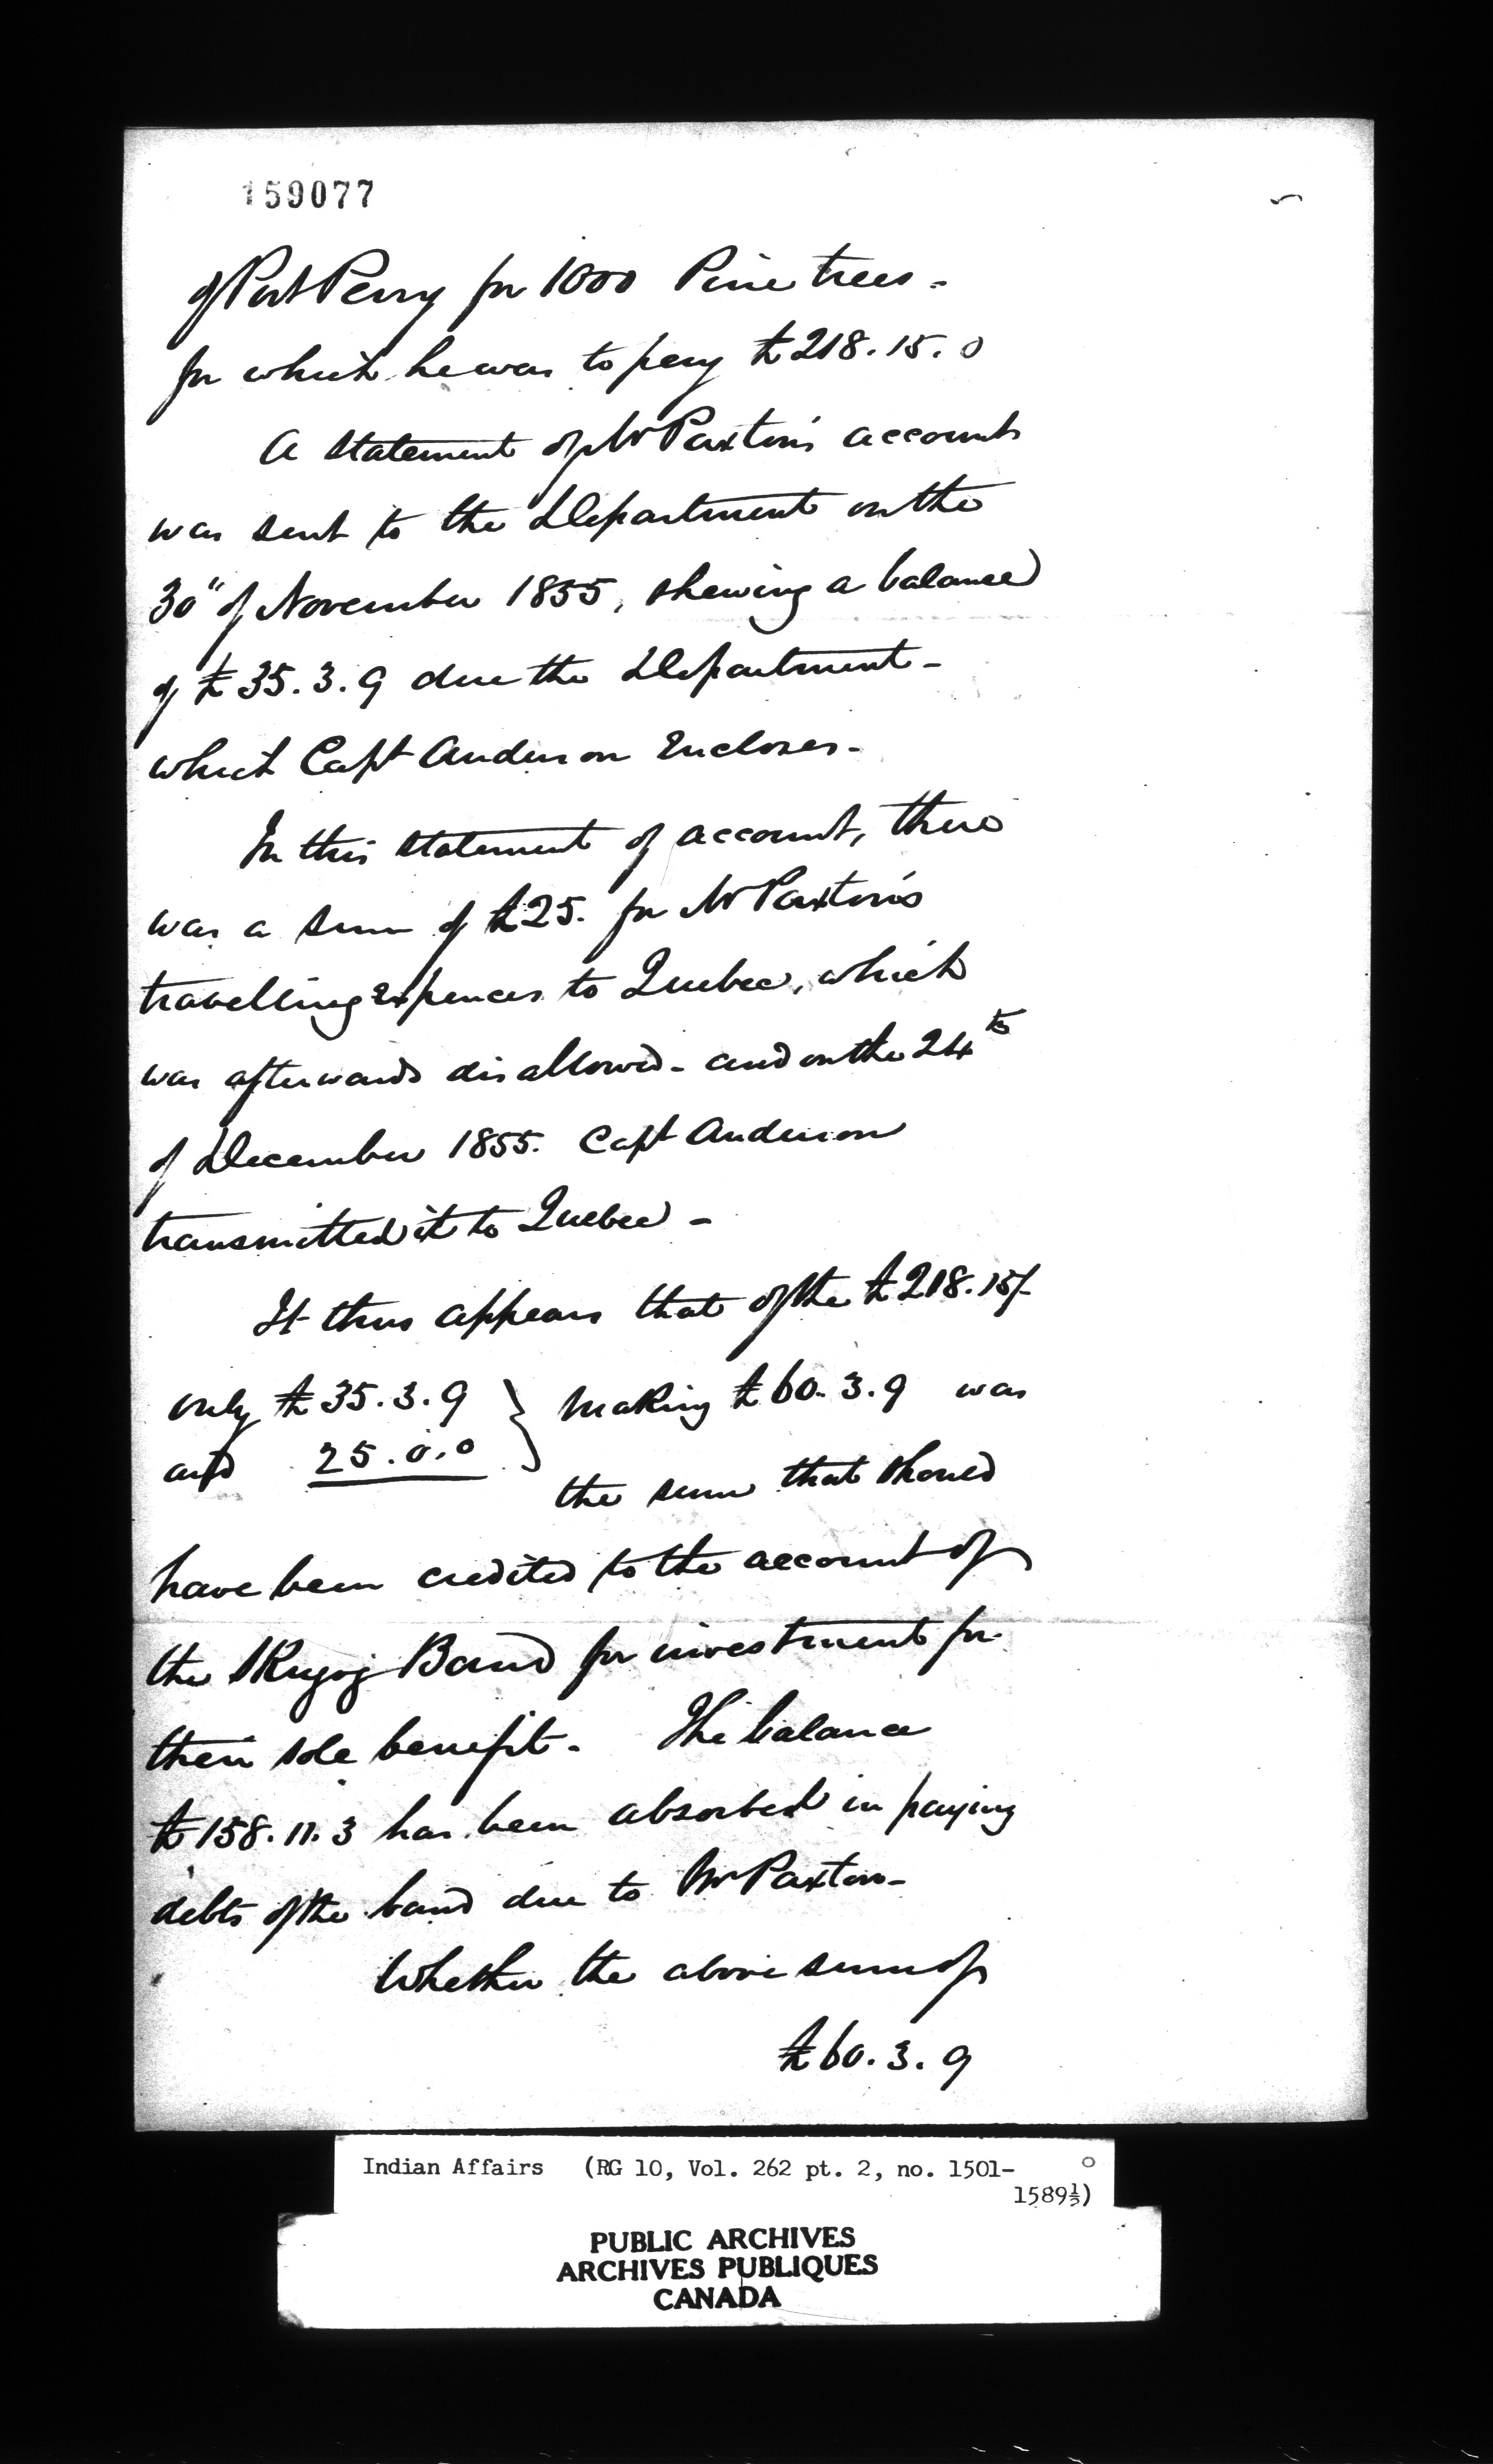 159077
of Port Perry for 1000 Pine trees -
for which he was to pay £218.15.0
A statement of Mr Paxton's account
was sent to the Department on the
30" of November 1855, shewing a balance
of £35.3.9 due the Department -
which Capt Anderson Encloses -
In this statement of account, there
was a sum of £25. for Mr Paxton's
travelling Expences to Quebec, which
was afterwards disallowed - and on the 24th
of December 1855. Capt Anderson
transmitted it to Quebec -
It thus appears that of the £218.15/-
only £35.3.9 } making £60.3.9 was
and 25.0.0
the sum that should
have been credited to the account of
the Skugog Band for investment for
their sole benefit. The balance
£158.11.3 has been absorbed in paying
debts of the band due to Mr Paxton -
Whether the above sum of
£60.3.9
Indian Affairs (RG 10, Vol. 262 pt. 2, no. 1501-
1589½)
PUBLIC ARCHIVES
ARCHIVES PUBLIQUES
CANADA